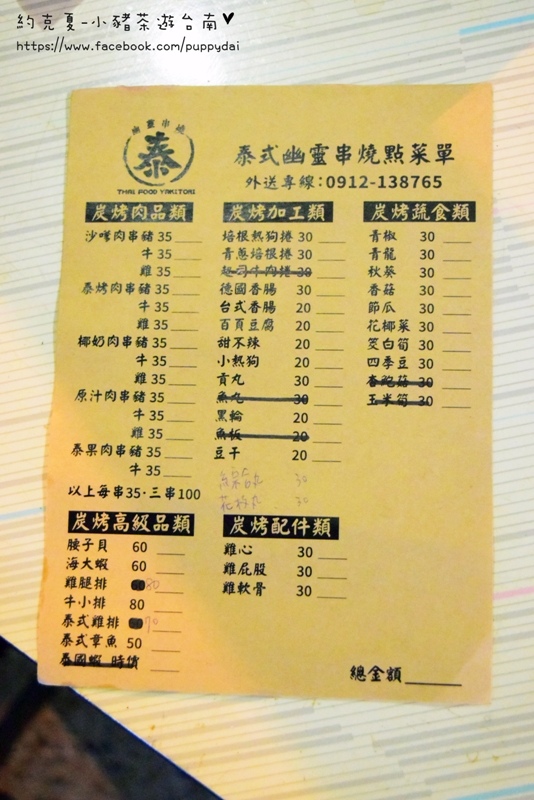 約克夏-小豬茶遊台南♥
https://www.facebook.com/puppydai
幽靈串燒
泰
THAI FOOD YAKITORI
泰式幽靈串燒點菜單
外送專線:0912-138765
炭烤肉品類
沙嗲肉串豬 35
牛 35
雞 35
泰烤肉串豬 35
牛 35
雞 35
椰奶肉串豬 35
牛 35
雞 35
原汁肉串豬 35
牛 35
雞 35
泰果肉串豬 35
牛 35
以上每串35·三串100
炭烤加工類
培根熱狗捲 30
青蔥培根捲 30
起司牛肉捲 30
德國香腸 30
台式香腸 20
百頁豆腐 20
甜不辣 20
小熱狗 20
貢丸 30
魚丸 30
黑輪 20
魚板 20
豆干 20
30
花枝丸 30
炭烤蔬食類
青椒 30
青龍 30
秋葵 30
香菇 30
節瓜 30
花椰菜 30
筊白筍 30
四季豆 30
杏鮑菇 30
玉米筍 30
炭烤高級品類
腰子貝 60
海大蝦 60
雞腿排 80
牛小排 80
泰式雞排 70
泰式章魚 50
泰國蝦 時價
炭烤配件類
雞心 30
雞屁股 30
雞軟骨 30
總金額